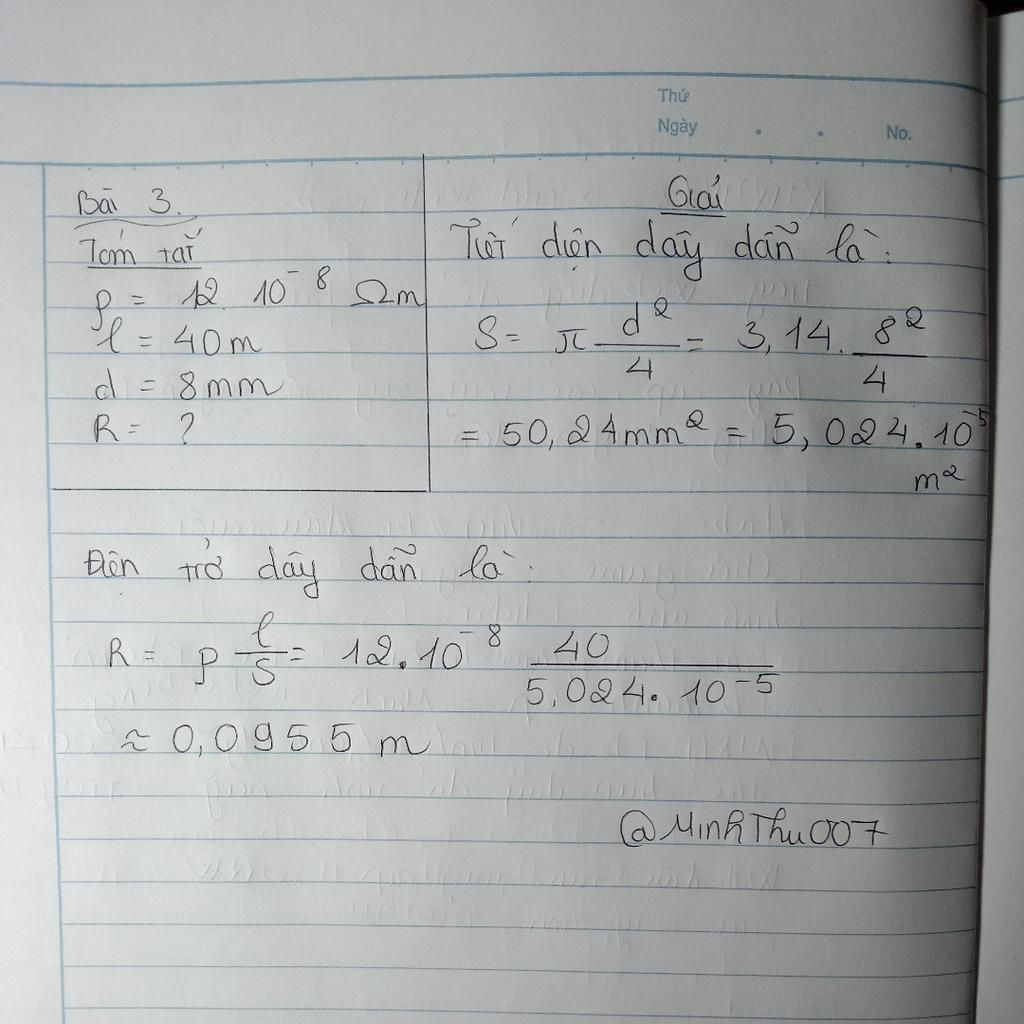 Thứ
Ngày . . No.
Bài 3.
Tóm tắt
ρ = 12. 10⁻⁸ Ωm
l = 40m
d = 8mm
R = ?
Giải
Tiết diện dây dẫn là:
S = π d²/4 = 3,14. 8²/4
= 50,24mm² = 5,024.10⁻⁵
m²
Điện trở dây dẫn là:
R = ρ l/S = 12.10⁻⁸ 40/5,024.10⁻⁵
≈ 0,0955 m
@MinhThu007